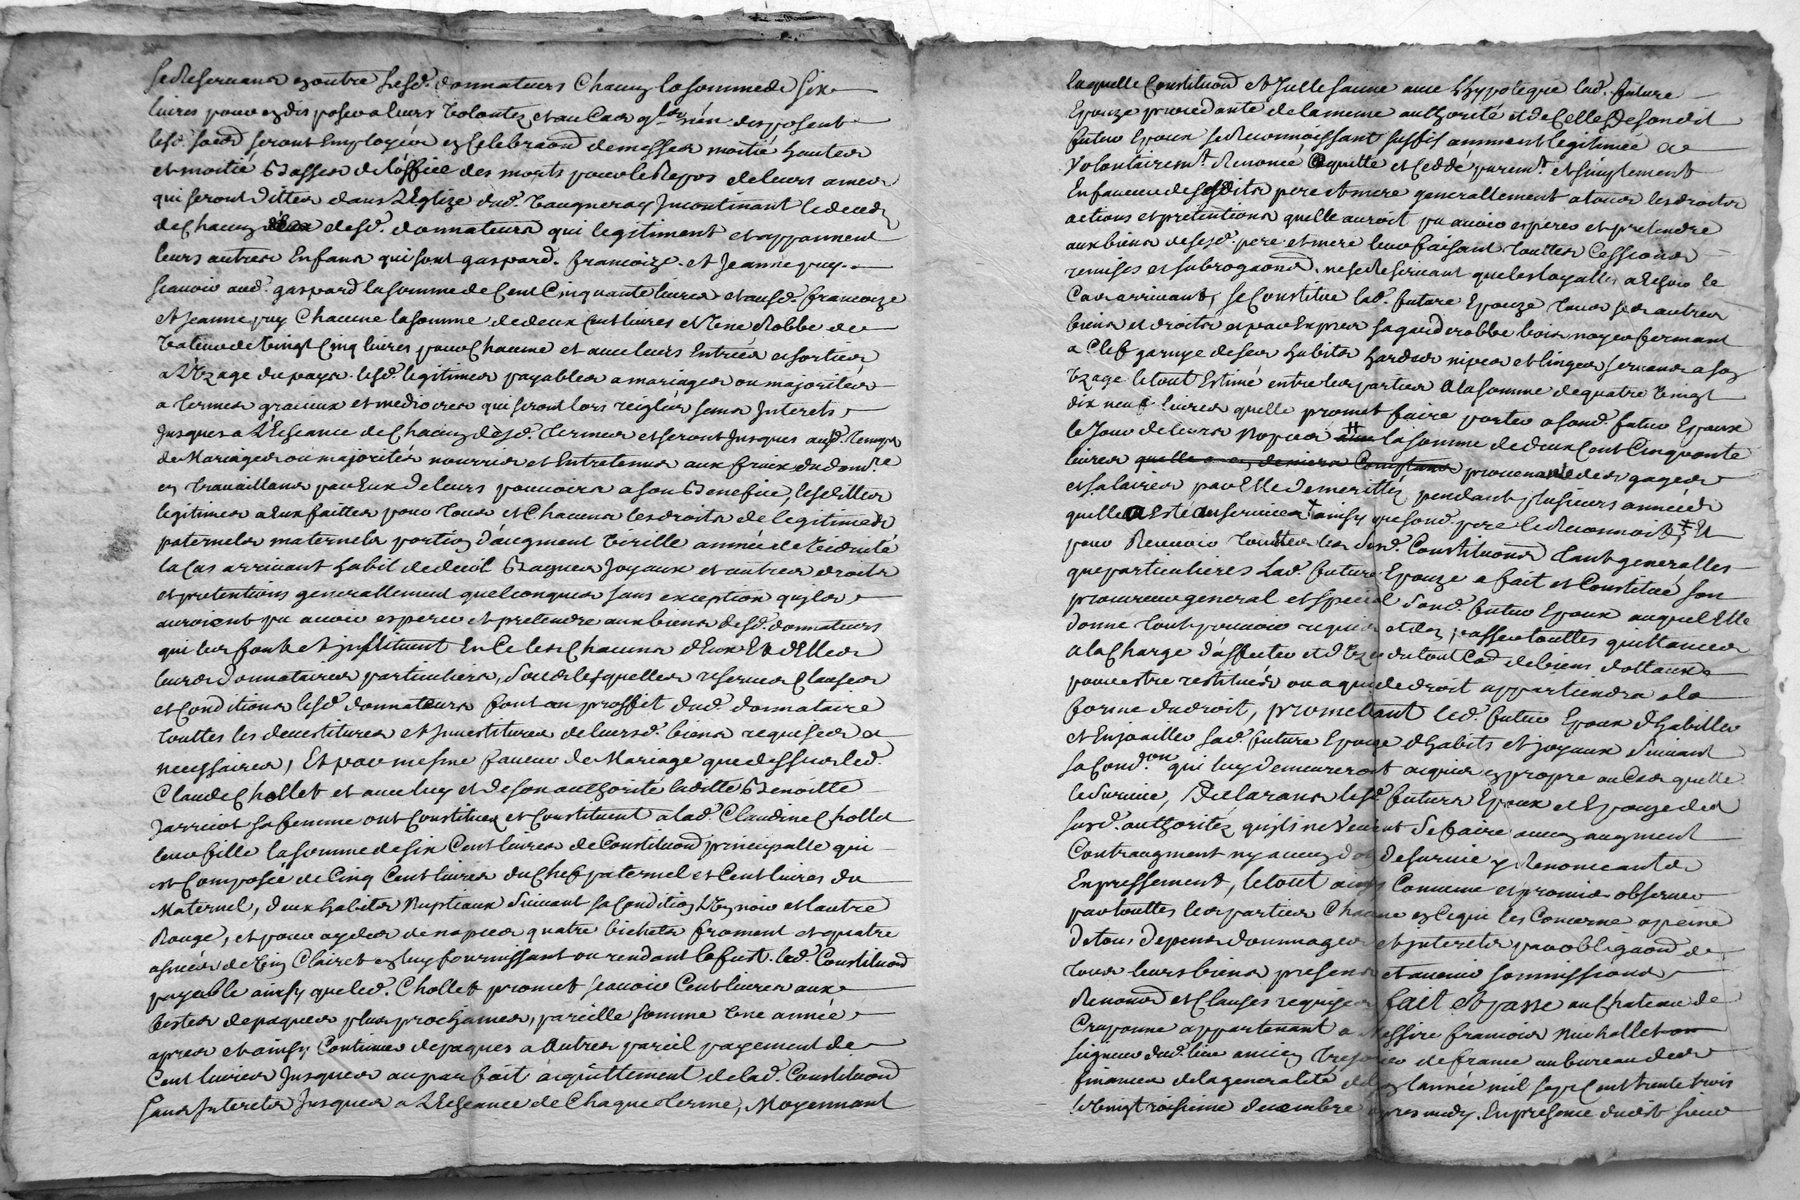 se Reservans en outre lesd. donnateurs Chacun la somme de six
livres pour en disposer a leurs volontez et au Cas qls n'en disposent
lesd. so͠es seront Employées en Celebra͠on de messes moitié hautes
et moitié Basses de l'office des morts pour le Repos de leurs ames
qui seront dittes dans L'Eglize dud. Vaugneray Incontinant le decedz
de Chacun desd. donnateurs qui legitiment et apponnent
leurs autres Enfans qui sont gaspard. francoize et Jeanne puy
scavoir aud. gaspard la somme de Cent Cinquante livres et ausd. francoize
et Jeanne puy Chacune la somme de deux Cent livres et Une Robbe de
Valeur de Vingt Cinq livres pour Chacune et avec leurs Entrées et sorties
a L'Uzage du pays. lesd. legitimes payables a mariages ou majorités
a termes gracieux et mediocres qui seront lors reiglés sans Interets
Jusques a L'Eheance de Chacun desd. termes et seront Jusques aud. temps
de Mariages ou majorités nourris et Entretenus aux fraix dud. don.re
en travaillans par Eux de leurs pouvoirs a son Benefice, lesdittes
legitimes a Eux faittes pour tous et Chacuns les droits de legitimes
paternels maternels portion d'augment Virille année de Viduité
la Cas arrivant habit de deuil Bagues Joyaux et autres droits
et pretentions generallement quelconques sans exception qu'ils
auroient pu avoir esperer et pretendre aux biens desd. donnateurs
qui les font et instituent En Ce les Chacuns d'Eux Et d'Elles
leurs donnataires particuliers, sous lesquelles reserves Clauses
et Conditions lesd. donnateurs font au proffit dud. donnataire
touttes les devestitures et Investitures de leursd. biens requises et
necessaires, Et par mesme faveur de Mariage que dessus led.
Claude Chollet et avec luy et de son authorité laditte Benoitte
Jarricot sa femme ont Constitué et Constituent a lad. Claudine Chollet
leur fille la somme de six Cent livres de Constitu͠on principalle qui
est Composée de Cinq Cent livres du Chef paternel et Cent livres du
Maternel, deux habits Nuptiaux suivant sa Condition L'Un noir et l'autre
Rouge, et pour aydes de nopces quatre bichets froment et quatre
asnées de Vin Clairet en luy fournissant ou rendant le fust. lad. Constitu͠on
payable ainsy que led. Chollet promet scavoir Cent livres aux
festes de paques plus prochaines, pareille somme Une année
apres et ainsy Continuer de paques a Autres pareil payement de
Cent livres Jusques au parfait aquittement de lad. Constitu͠on
sans Interets Jusques a L'Eheance de Chaque terme, Moyennant
laquelle Constitu͠on et Icelle sauve avec L'hypoteque lad. future
Epouze procedante de la meme authorité et de Celle de son dit
futur Epoux se Reconnoissant suffisamment legitimée a
Volontairem.t Renoncé Quitte et Ceddé purem.t et simplement
En faveur de sesdits pere et mere generallement a tous les droits
actions et pretentions quelle auroit pu avoir esperer et pretendre
aux biens de sesd. pere et mere leur faisant touttes Cessions
remises et subroga͠ons. ne se Reservant que les loyalles a Escoir le
Cas arrivant, se Constitue lad. future Epouze tous ses autres
biens et droits et par Exprés sa garderobbe bois noyer fermant
a Clef garnye de ses habits hardes nipes et linges servans a son
Uzage le tout Estimé entre les parties a la somme de quatre Vingt
dix neuf livres quelle promet faire porter a sond. futur Epoux
le Jour de leurs Nopces la somme de deux Cent Cinquante
livres quelle a en deniers Comptans provenans de ses gages
et salaires par Elle demerittés pendant plusieurs années
quelle a Esté en service ainsy que sond. pere le Reconnoit, Et
pour Recevoir touttes les susd. Constitu͠ons tant generalles
que particulieres lad. future Epouze a fait et Constitué son
procureur general et special sond. futur Epoux auquel Elle
donne tout pouvoir requis et d'en passer touttes quittances
a la Charge d'affecter et d'Ez en du tout Cad. de biens dottaux
pour estre restitués ou a qui de droit appartiendra a la
forme du droit, promettant led. futur Epoux d'habiller
et Enjoailler sad. future Epouze d'habits et joyaux suivant
sa Cond.on qui luy demeureront aquis en propre au Cas quelle
le survive, Declarans lesd. futurs Epoux et Epouze des
susd. authoritez qu'ils ne Veulent se faire aucun augment
Contraugment ny aucun don de survie y Renonceants
Expressement, le tout ainsy Convenu et promis observer
par touttes les parties Chacune en Ce qui les Concerne a peine
de tous depens dommages et Interets par obliga͠on de
tous leurs biens presens et avenir sommissions
Renon͠on et Clauses requises fait et passé au Chateau de
Craponne appartenant a Messire francois Nuchollet
seigneur dud. lieu ancien tresorier de france au bureau des
finances de la generalité de lyon l'année mil sept Cent trente trois
le Vingt troisieme decembre apres midy. En presence dudit sieur